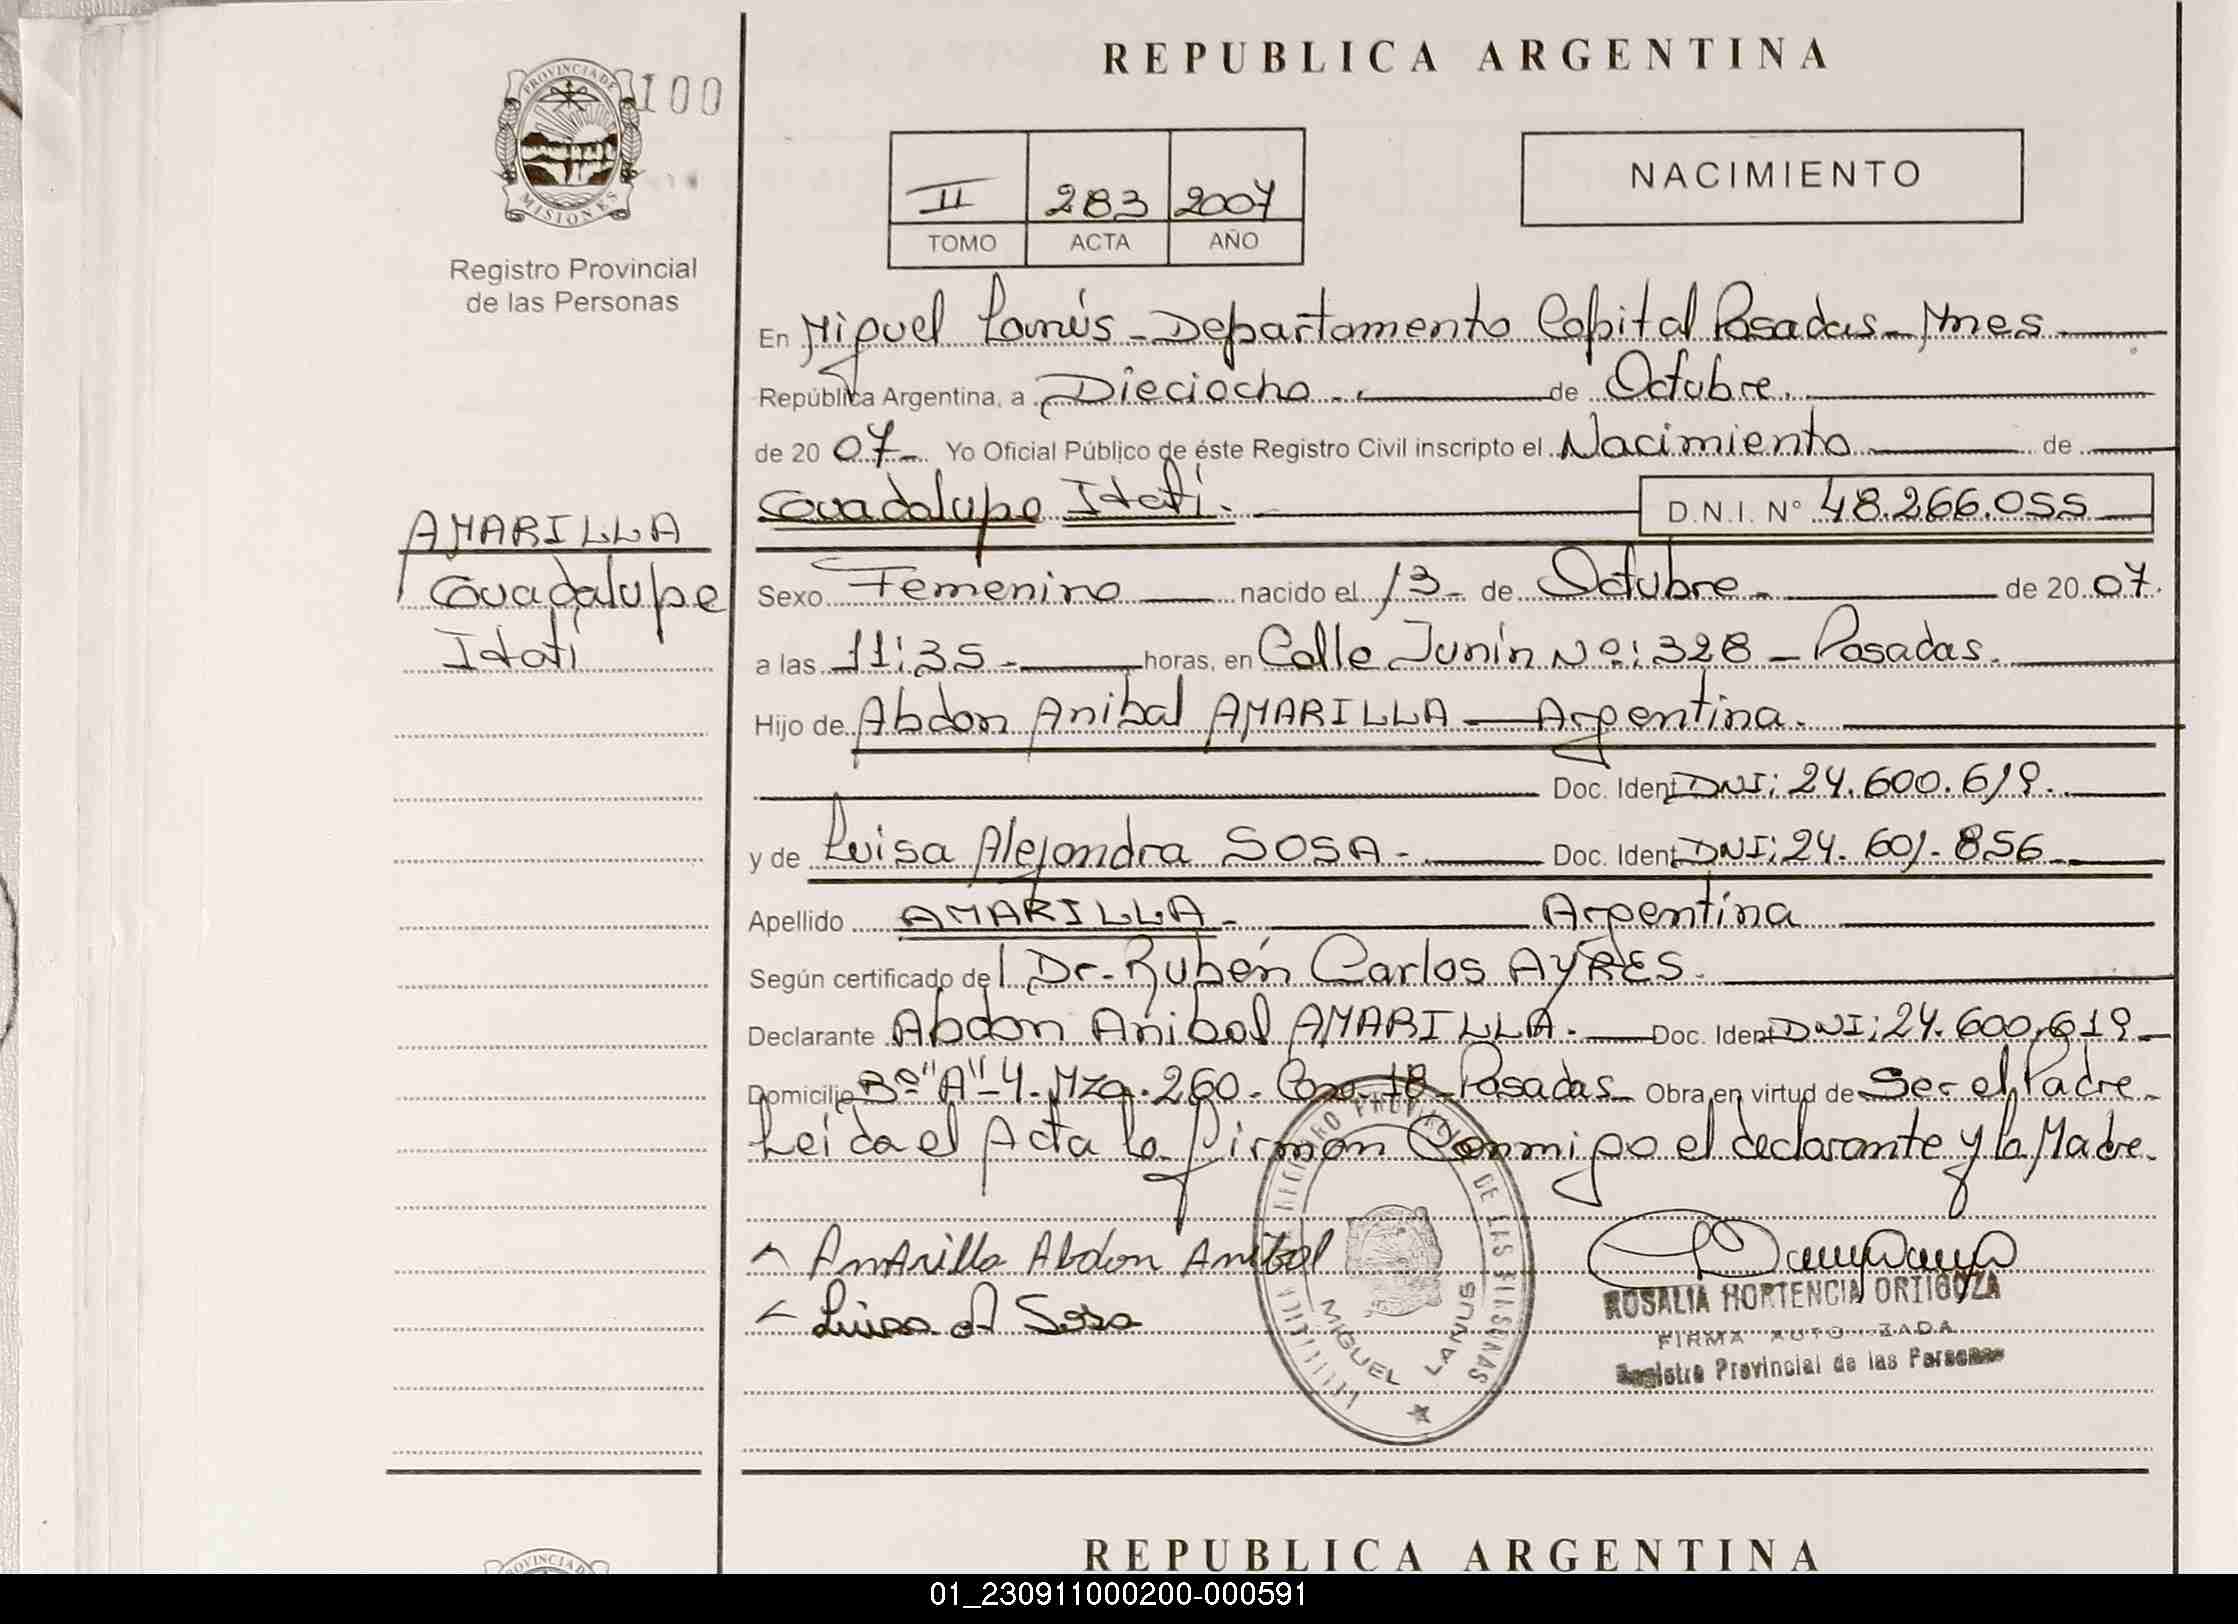 REPUBLICA ARGENTINA
PROVINCIA DE
MISIONES
100
Registro Provincial
de las Personas
II 283 2007
TOMO ACTA AÑO
NACIMIENTO
En Miguel Lanús - Departamento Capital Posadas - Mnes
República Argentina, a Dieciocho de Octubre.
de 20 07 Yo Oficial Público de éste Registro Civil inscripto el Nacimiento de
Guadalupe Itatí. D.N.I. Nº 48.266.055
AMARILLA
Guadalupe
Itatí
Sexo Femenino nacido el 13 de Octubre de 20 07.
a las 11:35 horas, en Calle Junín Nº: 328 - Posadas.
Hijo de Abdon Anibal AMARILLA - Argentina.
Doc. Ident DNI: 24.600.619.
y de Luisa Alejandra SOSA - Doc. Ident DNI: 24.601.856
Apellido AMARILLA - Argentina
Según certificado del Dr. Rubén Carlos AYRES.
Declarante Abdon Anibal AMARILLA. Doc. Ident DNI: 24.600.619
Domicilio Bº "A"-4. Mza. 260. Casa 18 - Posadas Obra en virtud de Ser el Padre
Leida el Acta la firman Conmigo el declarante y la Madre.
Amarilla Abdon Anibal
Luisa A Sosa
REGISTRO PROVINCIAL DE LAS PERSONAS
MIGUEL LANUS
ROSALIA HORTENCIA ORTIGOZA
FIRMA AUTORIZADA
Registro Provincial de las Personas
PROVINCIA D
REPUBLICA ARGENTINA
01_230911000200-000591